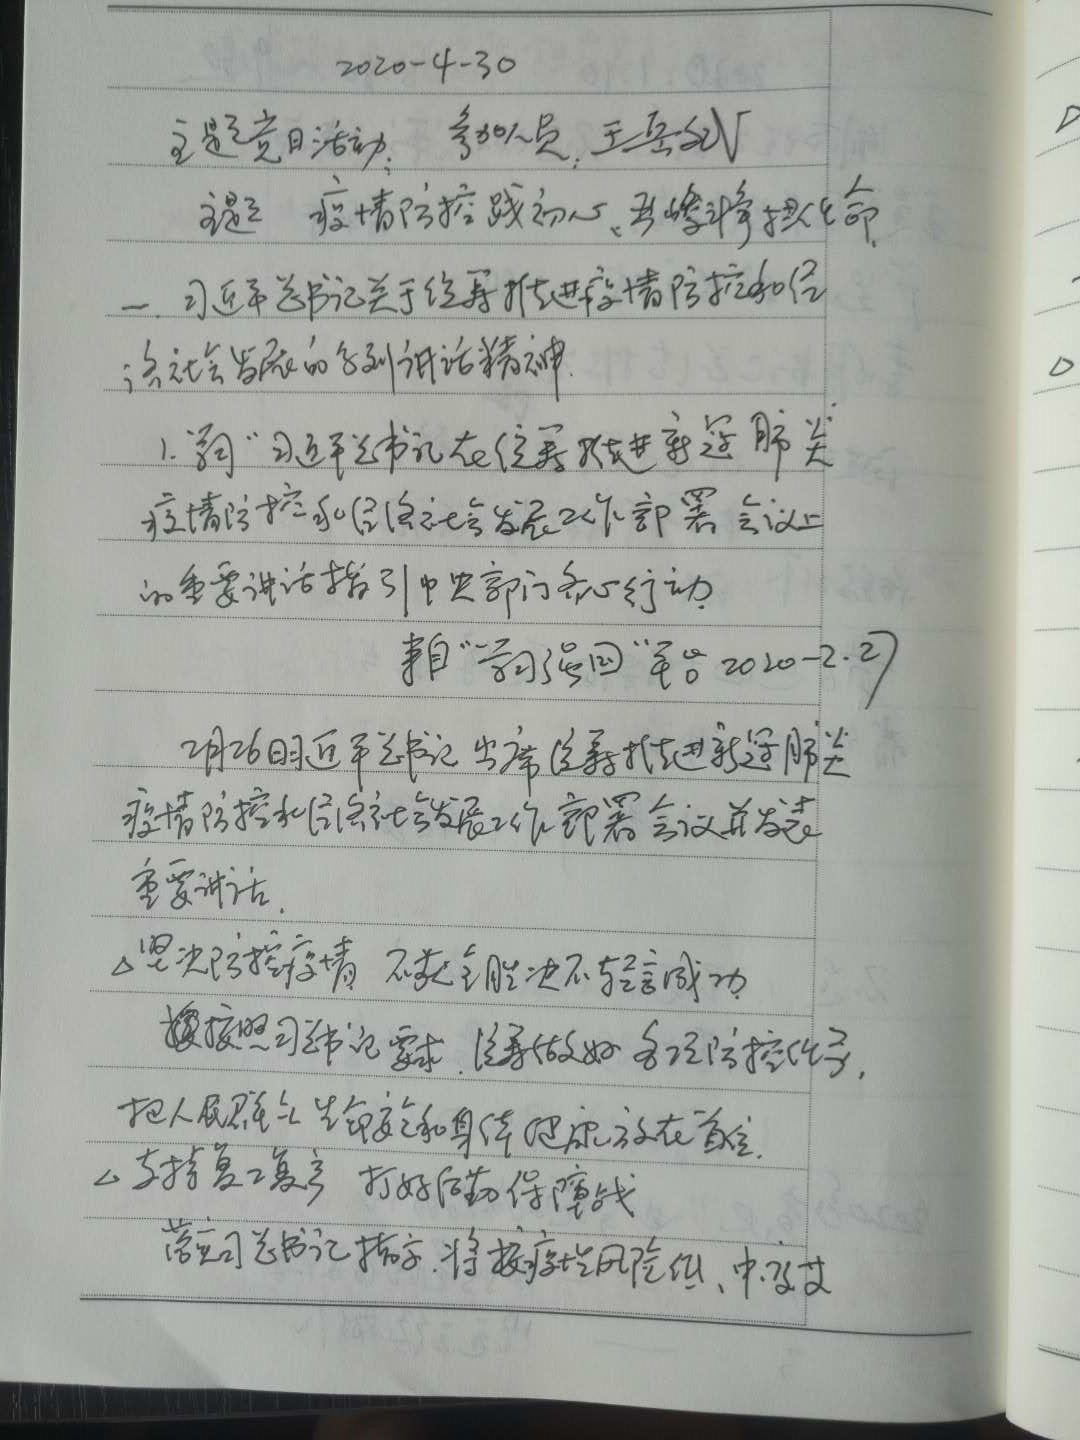 2020-4-30
主题党日活动: 参加人员:王岳
主题 疫情防控践初心、担使命.
一. 习近平总书记关于统筹推进疫情防控和经
济社会发展的系列讲话精神.
1. 学习"习近平总书记在统筹推进新冠肺炎
疫情防控和经济社会发展工作部署会议上
的重要讲话指引中央部门齐心行动
来自"学习强国"平台 2020-2.27
2月26日习近平总书记出席统筹推进新冠肺炎
疫情防控和经济社会发展工作部署会议并发表
重要讲话.
△坚决防控疫情 不获全胜决不轻言成功
按照习总书记要求.统筹做好各项防控任务,
把人民群众生命安全和身体健康放在首位.
△支持复工复产 打好后勤保障战
落实习总书记指示.将按疫情风险低、中、高